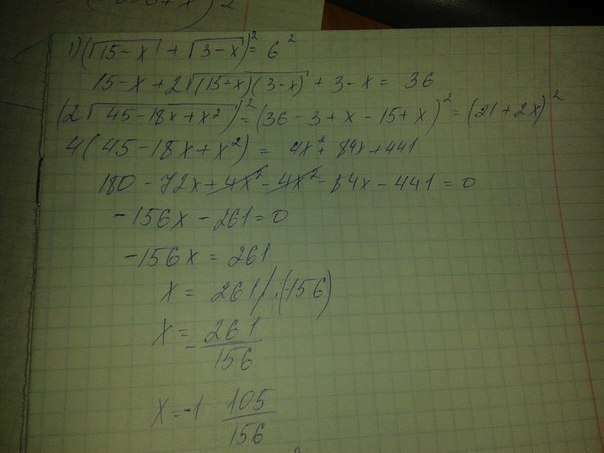 1) (√15-x + √3-x)² = 6²
15-x + 2√(15+x)(3-x) + 3-x = 36
(2√45-18x+x²)² = (36-3+x-15+x)² = (21+2x)²
4(45-18x+x²) = 4x²+84x+441
180-72x+4x²-4x²-84x-441=0
-156x-261=0
-156x = 261
x = 261/(-156)
x = -261/156
x = -1 105/156